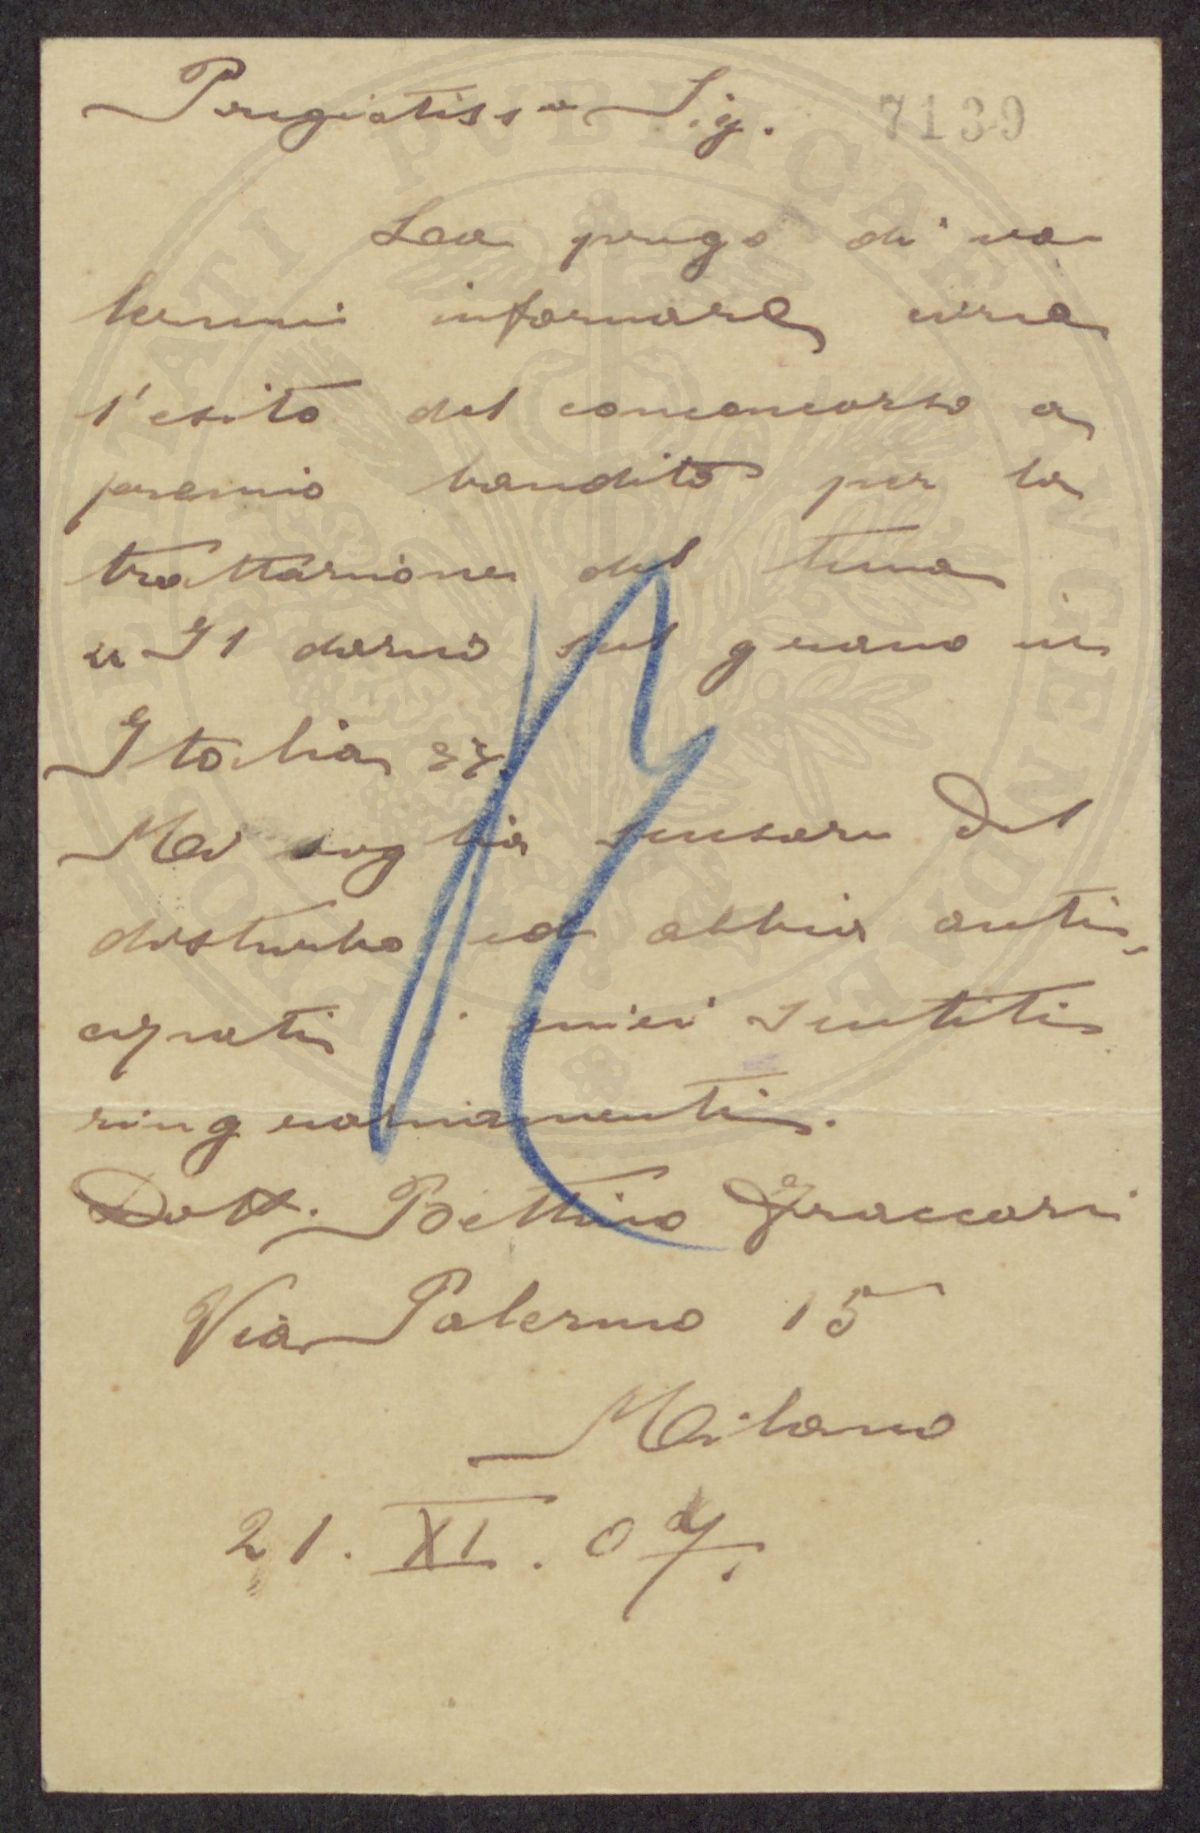 Pregiatiss.o Sig.
7139
La prego di vo
lermi informare circa
l'esito del conconcorso a
premio bandito per la
trattazione del tema
« Il dazio sul grano in
Italia ».
Mi voglia scusare del
disturbo ed abbia anti-
cipati i miei sentiti
ringraziamenti.
Dott. Bettino Fraccari
Via Palermo 15
Milano
21. XI. 07.
PVBLICAE
FELICITATI